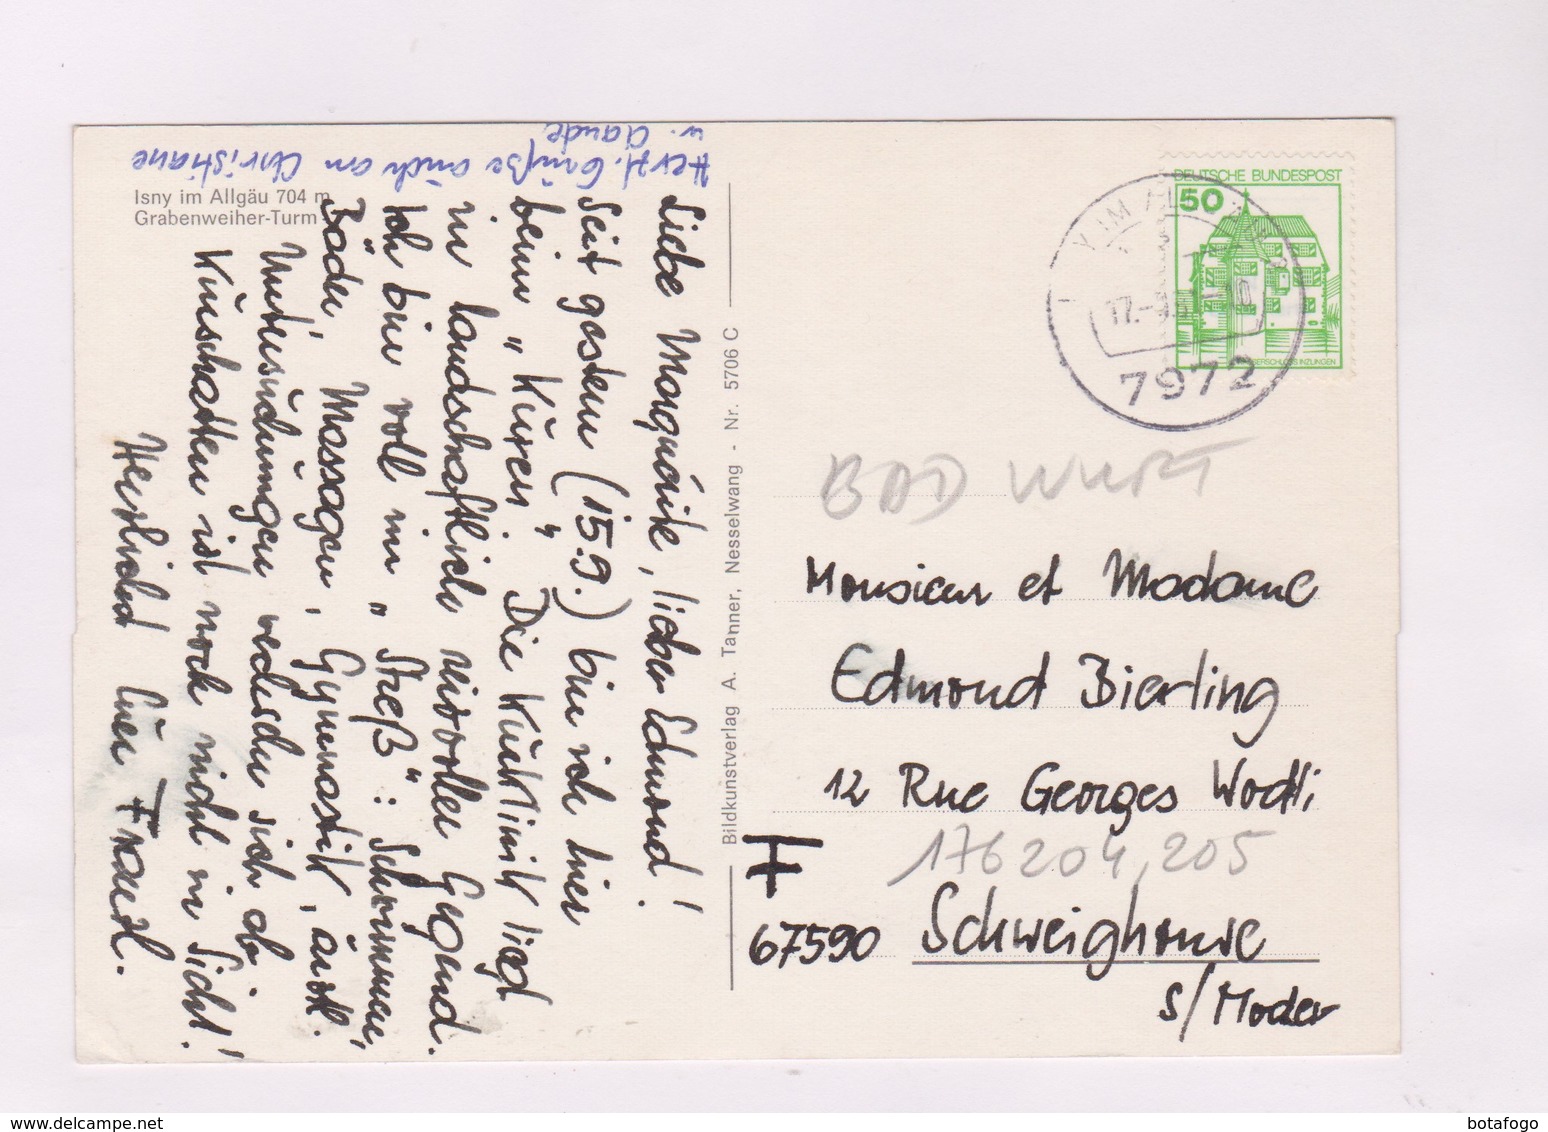 Herzl. Grüße auch an Christiane
u. Claude
Isny im Allgäu 704 m
Grabenweiher-Turm
Liebe Marguérite, lieber Edmond!
Seit gestern (15.9.) bin ich hier
beim „Kuren". Die Kurklinik liegt
in landschaftlich reizvoller Gegend.
Ich bin voll im „Streß": Schwimmen,
Bäder, Massagen, Gymnastik, ärztl.
Untersuchungen wechseln sich ab.
Kurschatten ist noch nicht in Sicht!
Herzlichst Euer Franzl.
Bildkunstverlag A. Tanner, Nesselwang - Nr. 5706 C
DEUTSCHE BUNDESPOST
50
INZLINGEN
7972
BAD WURT
Monsieur et Madame
Edmond Bierling
12 Rue Georges Wodli
176 204, 205
F
67590 Schweighouse
s/Moder
botafogo